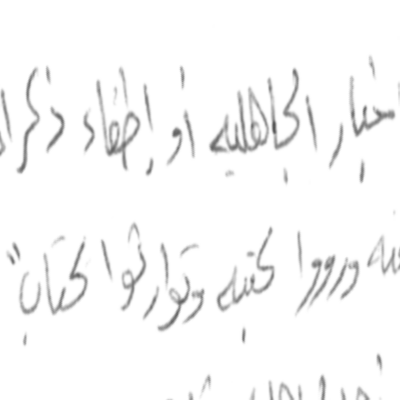 أخبار الجاهلية أو إطفاء ذكرا
ورووا كتبه وتوارثوا كتاب "